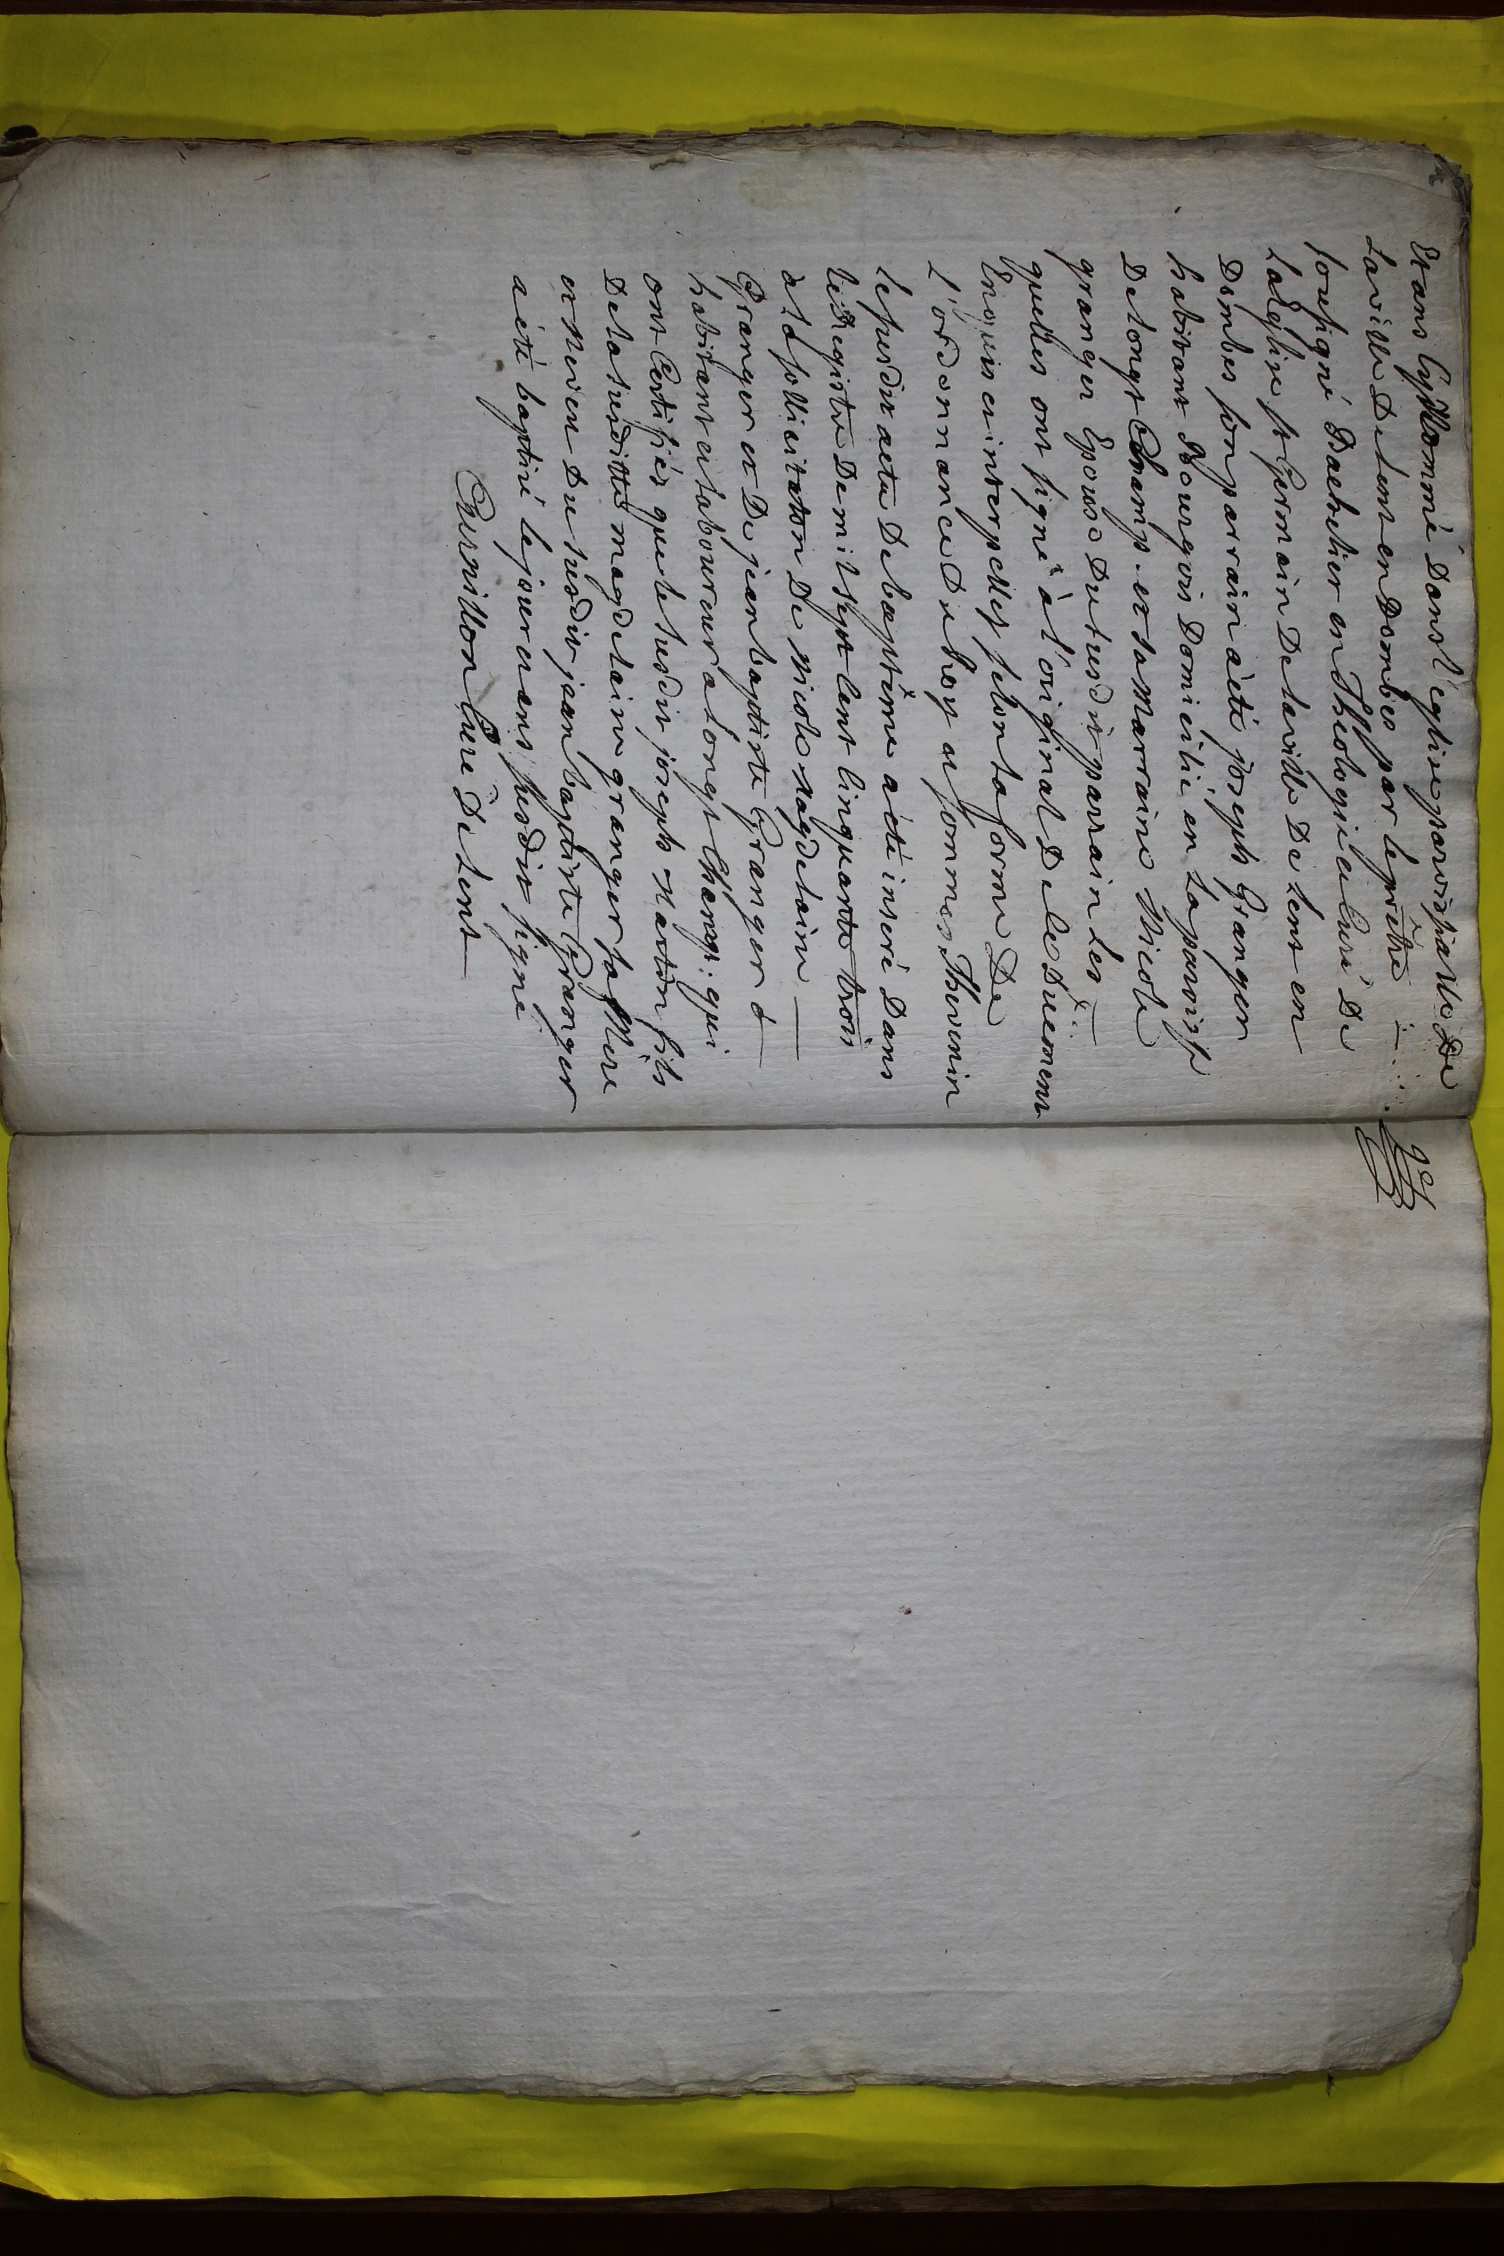 Et ans cy nommé Dans l'eglise paroissialle De
La ville De Lent en Dombes par le prêtre
soussigné Bachelier en Theologie et Curé De
L'église st Germain De la ville De Lent en
Dombes son parrain a été joseph Granger
habitant Bourgois Domicilié en La paroisse
De Longt Champ. et sa Marraine Nicole
granger Epouse Du susdit parrain Les
quelles ont signé à l'original De le Duement
Enquis et interpellez selon la forme De
L'ordonnance De hoy a sommes Thevenin
le susdit acte De baptême a été inseré Dans
le Registre De mil sept Cent Cinquante trois
a la sollicitation De nicole magdelaine
Granger et De jean baptiste Granger
habitant et laboureur a longt Champ: qui
ont Certifiés que le susdit joseph martin fils
De la susditte magdelaine granger sa Mere
et Neveu Du susdit jean baptiste Granger
a été baptisé le jour et ans susdit signé
Curnillon Curé De Lent